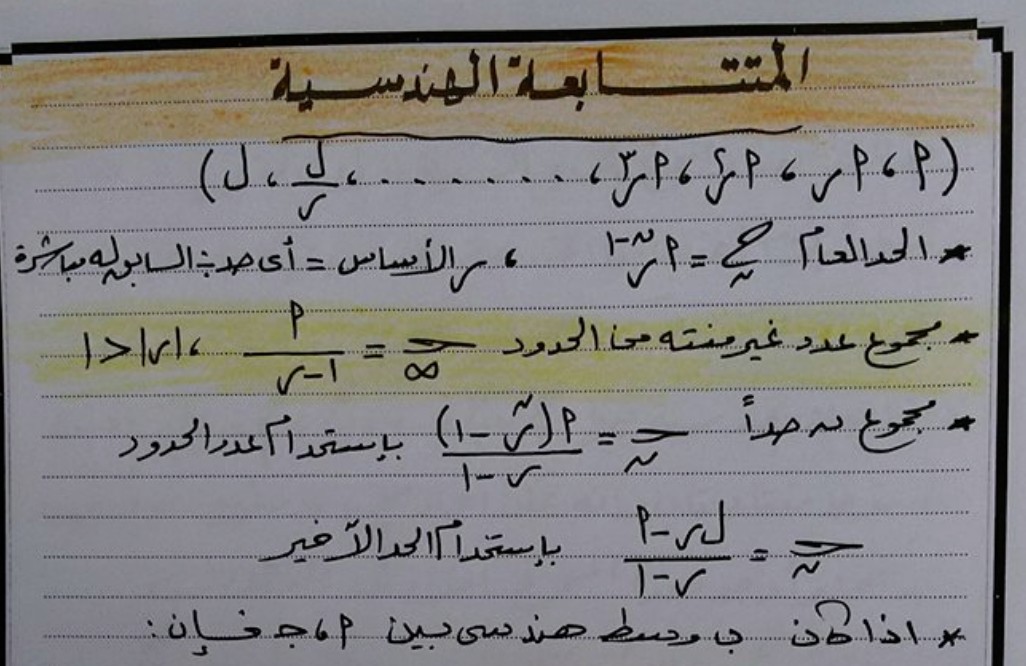 المتتابعة الهندسية
(م ، م ر ، م ر٢ ، م ر٣ ، . . . . . . . ، ل/ر ، ل)
* الحد العام ح ن = م ر ن-١ ، ر الأساس = أى حد ÷ السابق له مباشرة
* مجموع عدد غير منته من الحدود مجـ ∞ = م / (١-ر) ، |ر| < ١
* مجموع ن حداً مجـ ن = م(ر ن - ١) / (ر - ١) بإستخدام عدد الحدود
مجـ ن = (ل ر - م) / (ر - ١) بإستخدام الحد الأخير
* اذا كان ب وسط هندسى بين م ، جـ فإن :